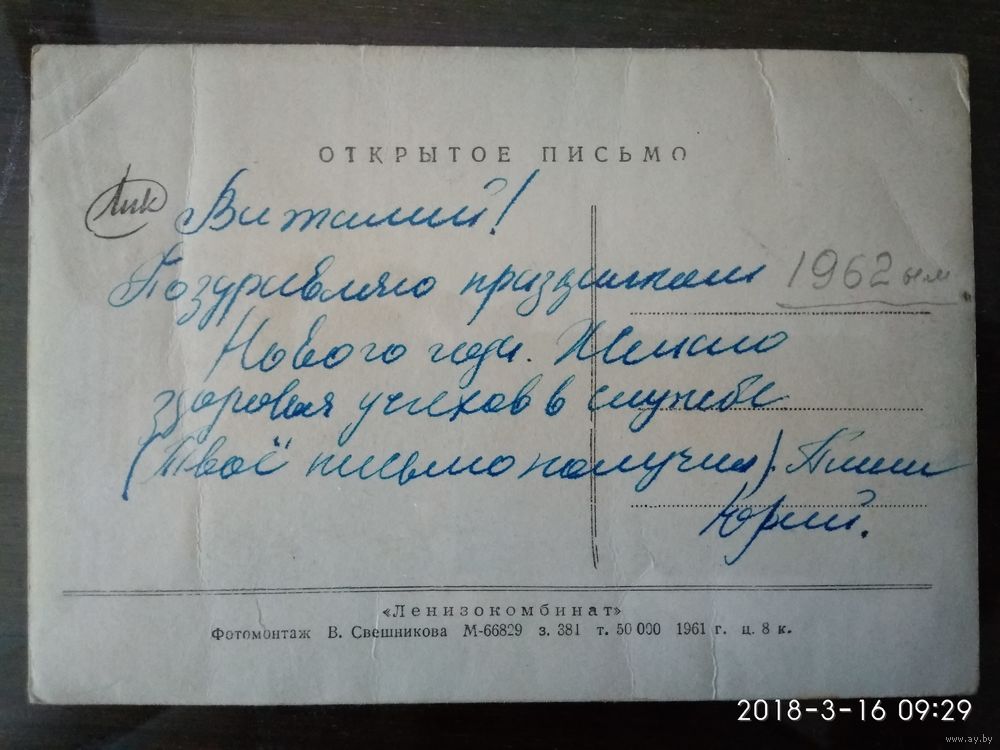 ОТКРЫТОЕ ПИСЬМО
Виталий!
Поздравляю праздником 1962 ым
Нового года. Желаю
здоровья успехов в службе
(Твоё письмо получил). Пиши
Юрий.
«Ленизокомбинат»
Фотомонтаж В. Свешникова М-66829 з. 381 т. 50 000 1961 г. ц. 8 к.
2018-3-16 09:29
www.ay.by